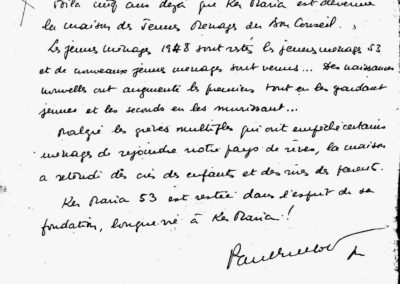 Voilà cinq ans déjà que Ker Maria est devenue
la maison des Jeunes Ménages du Bon Conseil.
Les jeunes ménages 1948 sont restés les jeunes ménages 53
et de nouveaux jeunes ménages sont venus... Des naissances
nouvelles ont augmenté les premiers tout en les gardant
jeunes et les seconds en les mûrissant...
Malgré les grèves multiples qui ont empêché certains
ménages de rejoindre notre pays de rêves, la maison
a retenti des cris des enfants et des rires des parents.
Ker Maria 53 est restée dans l'esprit de sa
fondation, longue vie à Ker Maria!